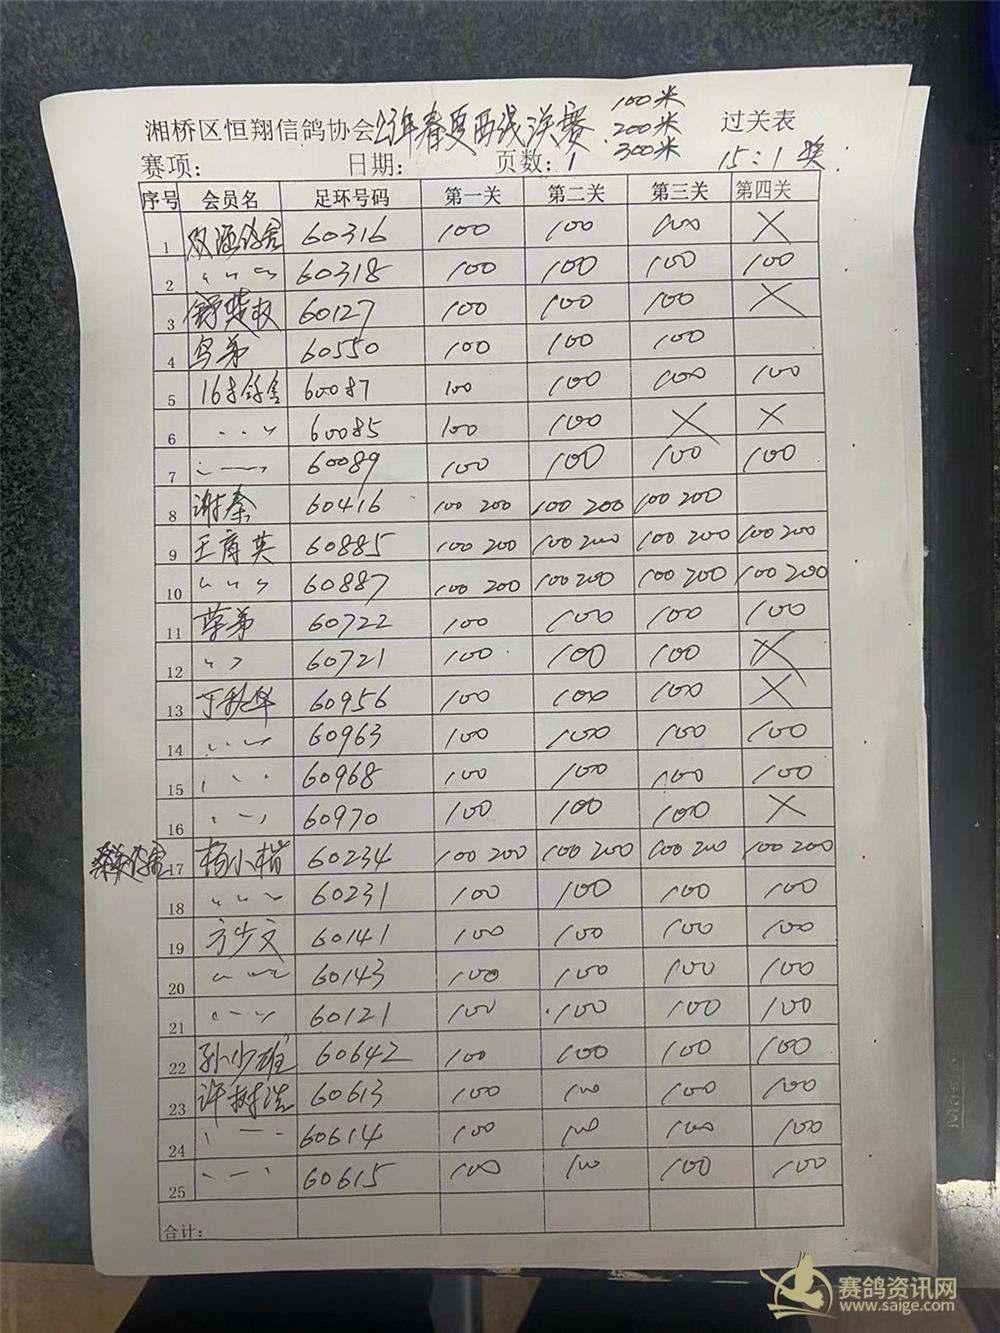 湘桥区恒翔信鸽协会23年春夏西线决赛 100米 过关表
200米
300米
赛项: 日期: 页数:1 15:1奖
序号 会员名 足环号码 第一关 第二关 第三关 第四关
1 60316 100 100 100 ×
2 〃 〃 〃 60318 100 100 100 100
3 60127 100 100 100 ×
4 60550 100 100 100
5 60087 100 100 100 100
6 〃 〃 〃 60085 100 100 × ×
7 60089 100 100 100 100
8 谢泰 60416 100 200 100 200 100 200
9 王育英 60885 100 200 100 200 100 200 100 200
10 〃 〃 〃 60887 100 200 100 200 100 200 100 200
11 60722 100 100 100 100
12 〃 〃 60721 100 100 100 ×
13 丁秋华 60956 100 100 100 ×
14 〃 〃 〃 60963 100 100 100 100
15 〃 〃 〃 60968 100 100 100 100
16 〃 〃 〃 60970 100 100 100 ×
17 杨小楷 60234 100 200 100 200 100 200 100 200
18 〃 〃 〃 60231 100 100 100 100
19 方少文 60141 100 100 100 100
20 〃 〃 〃 60143 100 100 100 100
21 〃 〃 〃 60121 100 100 100 100
22 孙少雄 60642 100 100 100 100
23 许树浩 60613 100 100 100 100
24 60614 100 100 100 100
25 60615 100 100 100 100
合计:
Maseo
赛鸽资讯网
www.saige.com